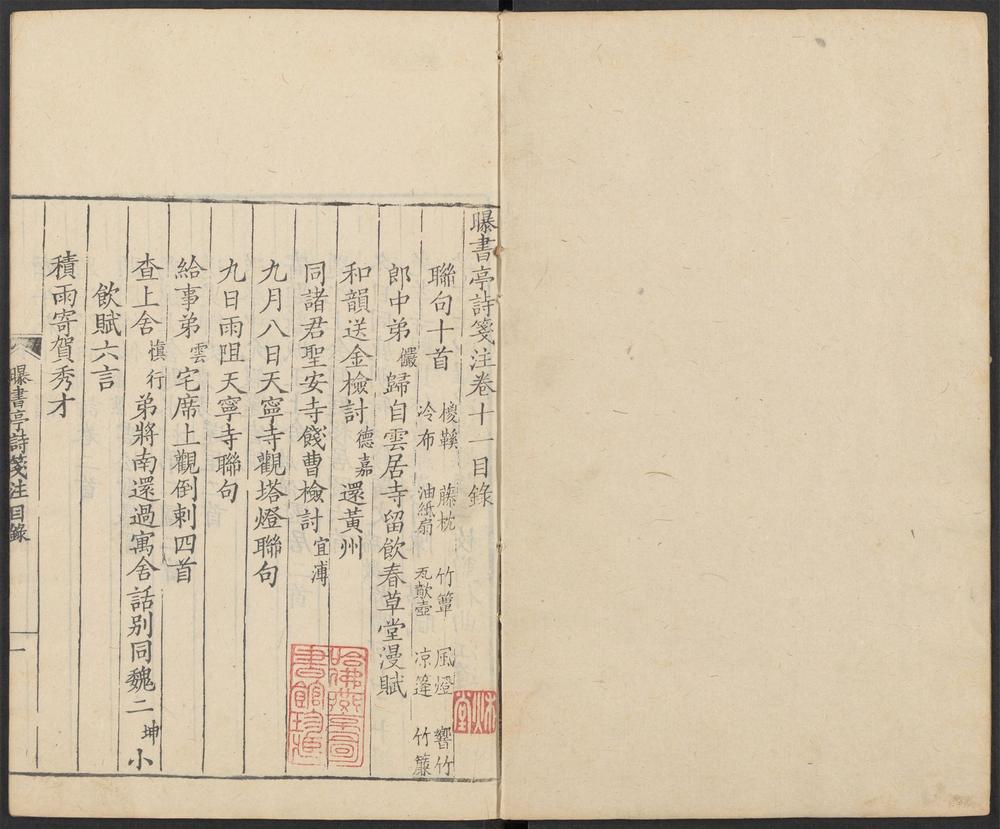 曝書亭詩箋注卷十一目錄
聯句十首 㯶鞵 藤枕 竹簟 風燈 響竹
冷布 油紙扇 瓦歕壺 凉篷 竹簾
郎中弟儼歸自雲居寺留飲春草堂漫賦
和韻送金檢討德嘉還黃州
同諸君聖安寺餞曹檢討宜溥
九月八日天寧寺觀塔燈聯句
九日雨阻天寧寺聯句
給事弟雲宅席上觀倒刺四首
查上舍慎行弟將南還過寓舍話别同魏二坤小
飲賦六言
積雨寄賀秀才
曝書亭詩箋注目錄 一
哈佛燕京圖書館珍藏